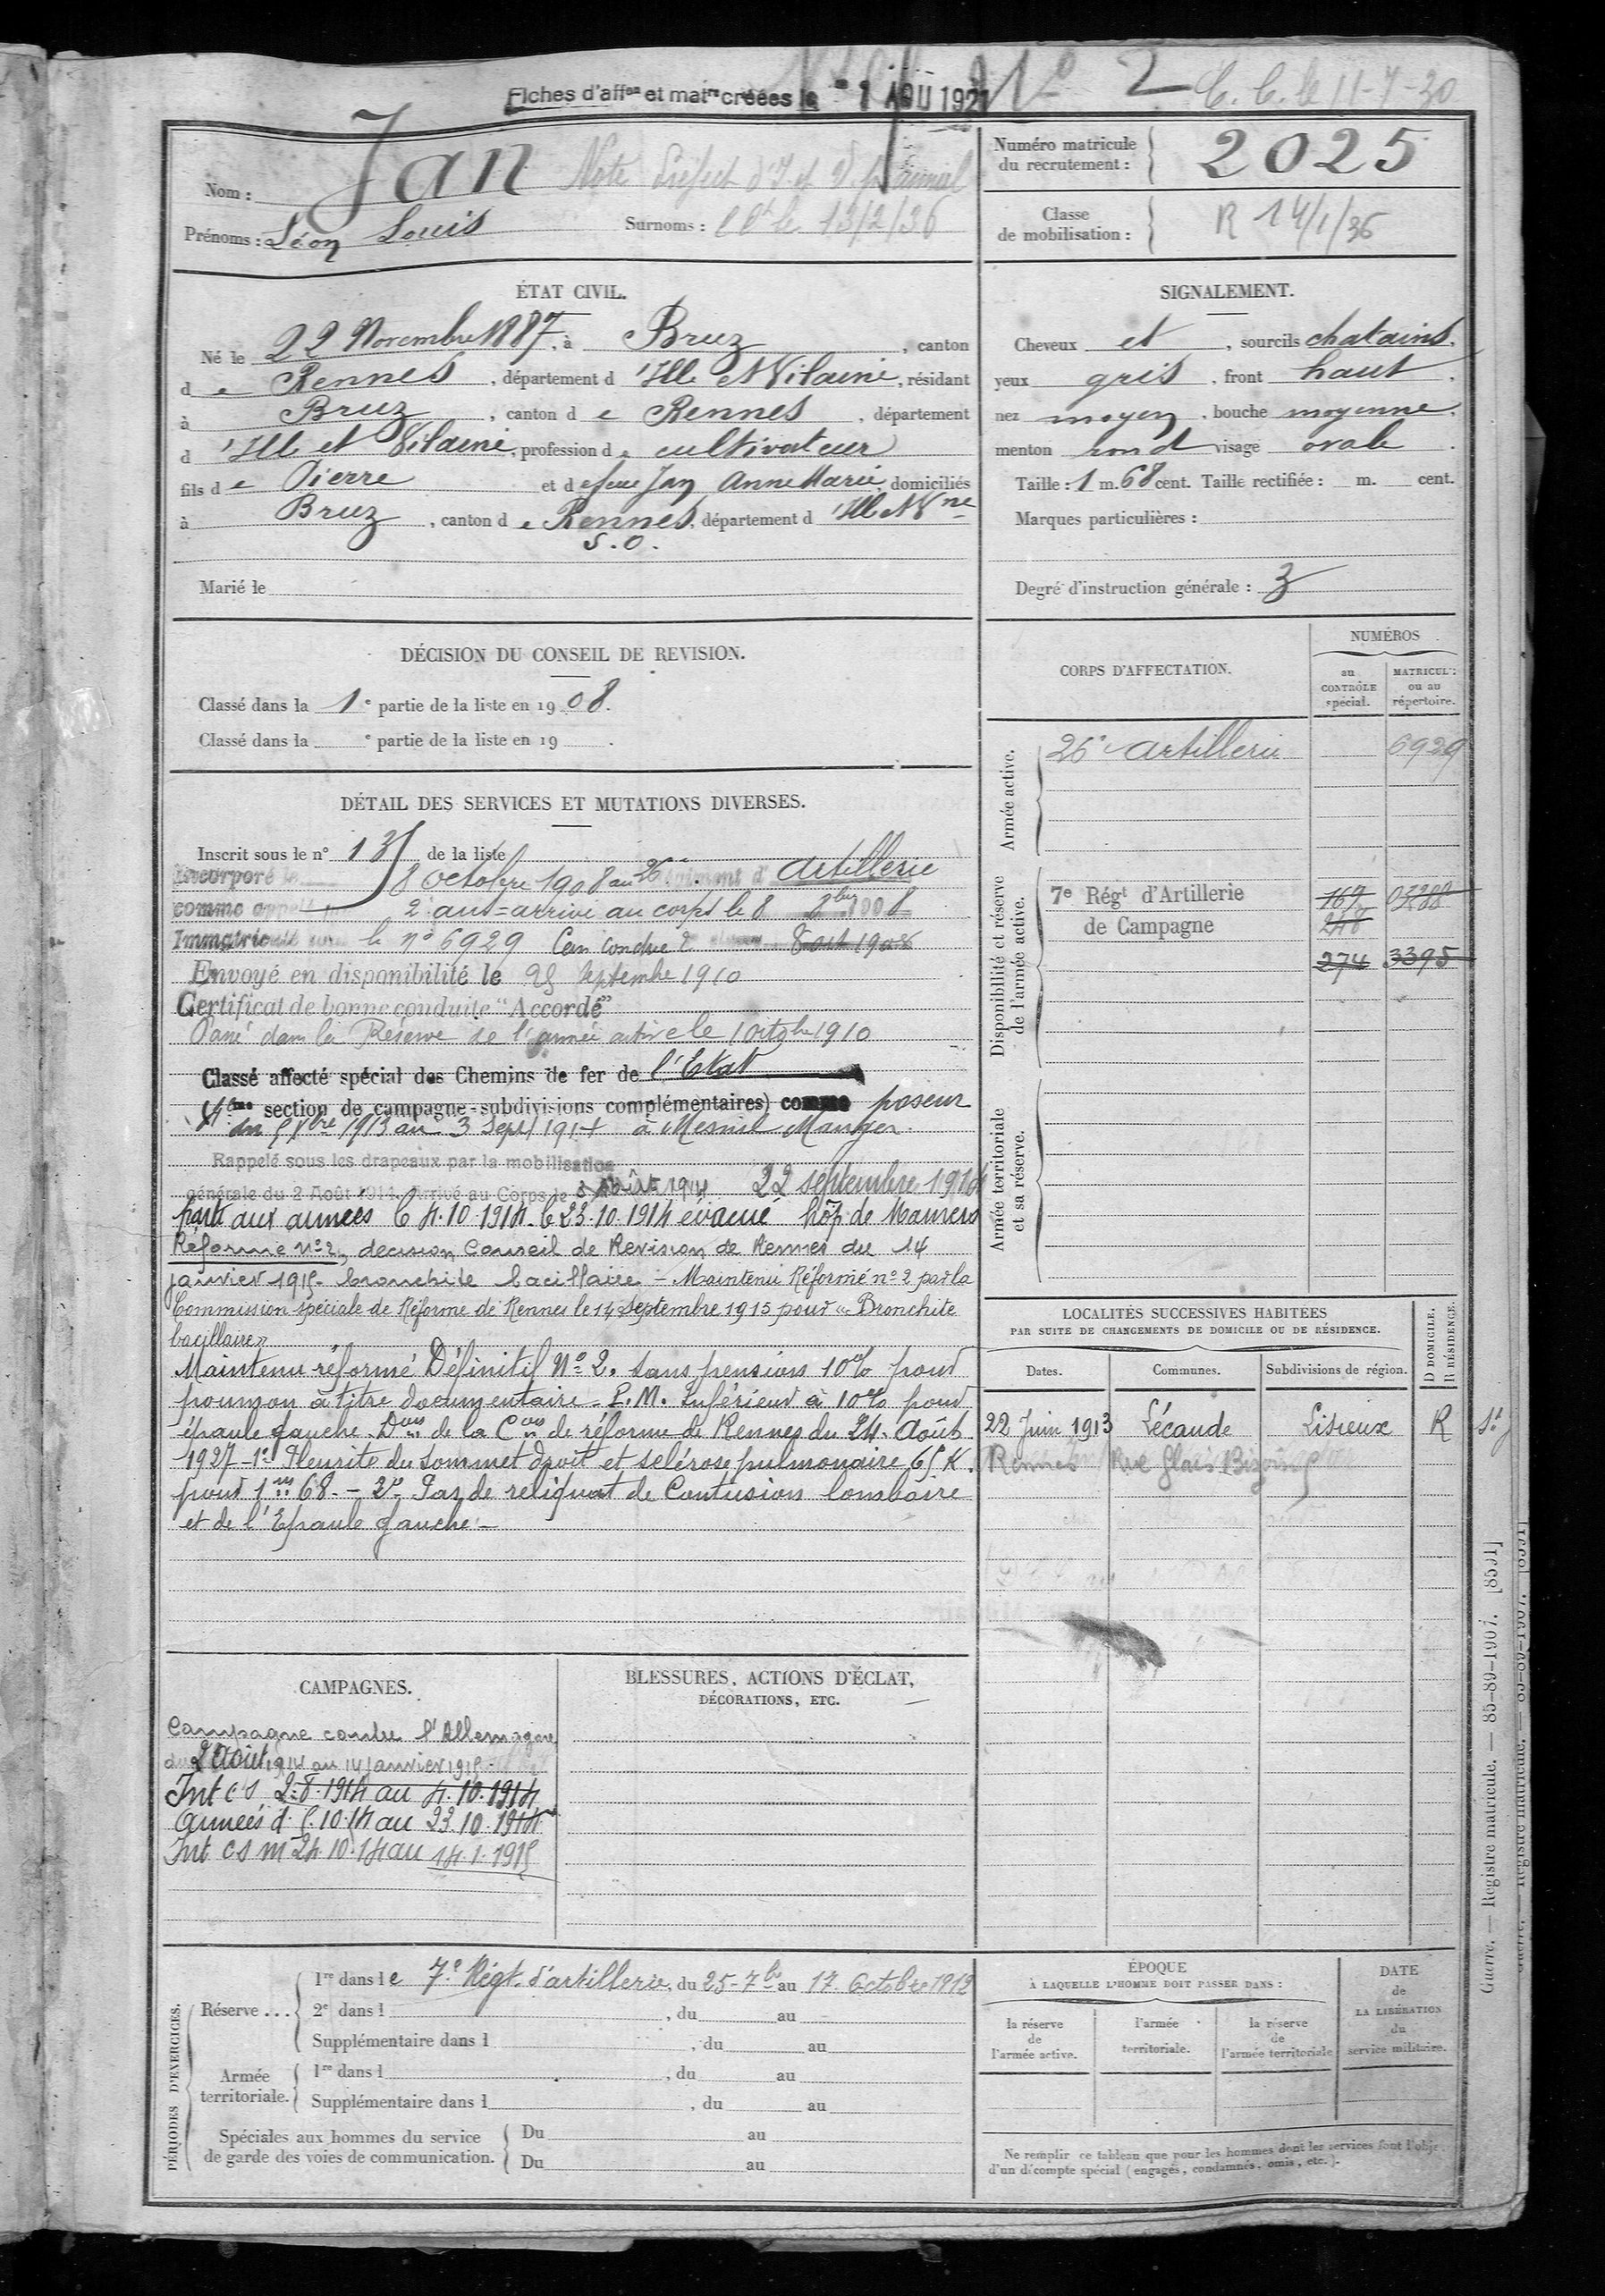 Fiches d'affon et matre créées le - 1 AOU 1921 No 2 C. C. le 11-7-30
Nom : Jan
Note Préfect d'I et V.
Prénoms : Léon Louis Surnoms : le 13/2/36
Numéro matricule du recrutement : 2025
Classe de mobilisation : R 14/1/36
ÉTAT CIVIL.
Né le 22 Novembre 1887, à Bruz, canton
de Rennes, département d'Ille et Vilaine, résidant
à Bruz, canton de Rennes, département
d'Ille et Vilaine, profession de cultivateur
fils de Pierre et de feue Jan Anne Marie, domiciliés
à Bruz, canton de Rennes, département d'Ille et Vne
S.O.
Marié le
SIGNALEMENT.
Cheveux et, sourcils chatains,
yeux gris, front haut,
nez moyen, bouche moyenne,
menton rond visage ovale.
Taille : 1 m. 68 cent. Taille rectifiée : m. cent.
Marques particulières :
Degré d'instruction générale : 3
DÉCISION DU CONSEIL DE REVISION.
Classé dans la 1e partie de la liste en 1908.
Classé dans la e partie de la liste en 19 .
DÉTAIL DES SERVICES ET MUTATIONS DIVERSES.
Inscrit sous le n° 13 de la liste
Incorporé le 8 octobre 1908 au 26e Régiment d'Artillerie
comme appelé 2 ans = arrivé au corps le 8 8bre 1908
Immatriculé sous le n° 6929 Can conduct 8 oct 1908
Envoyé en disponibilité le 25 septembre 1910
Certificat de bonne conduite "Accordé"
Passé dans la Réserve de l'armée active le 1 octobre 1910
Classé affecté spécial des Chemins de fer de l'Etat
(4ème section de campagne-subdivisions complémentaires) comme poseur
du 5 Xbre 1913 au 3 Sept 1914 à Mesnil Mauger.
Rappelé sous les drapeaux par la mobilisation
générale du 2 Août 1914. Arrivé au Corps le 3 Août 1914 22 septembre 1914
parti aux armées le 4.10.1914. le 23.10.1914 évacué hôp de Mamers
Réforme n° 2, décision Conseil de Revision de Rennes du 14
janvier 1915. bronchite bacillaire - Maintenu Réformé n° 2 par la
Commission spéciale de Réforme de Rennes le 14 Septembre 1915 pour « Bronchite
bacillaire »
Maintenu réformé Définitif N° 2. sans pension 10% pour
poumon à titre documentaire. P.M. Inférieur à 10% pour
épaule gauche. Don de la Con de réforme de Rennes du 24 Août
1927 - 1° Pleurite du sommet droit et sclérose pulmonaire, 65 K.
pour 1m 68. - 2° Pas de reliquat de Contusion lombaire
et de l'Epaule gauche -
CORPS D'AFFECTATION.
NUMÉROS
au CONTRÔLE spécial.
MATRICULE ou au répertoire.
Armée active.
26e Artillerie 6929
Disponibilité et réserve de l'armée active.
7e Régt d'Artillerie 167
de Campagne 248
274 3395
Armée territoriale et sa réserve.
LOCALITÉS SUCCESSIVES HABITÉES
PAR SUITE DE CHANGEMENTS DE DOMICILE OU DE RÉSIDENCE.
Dates. Communes. Subdivisions de région. D DOMICILE. R RÉSIDENCE.
22 Juin 1913 Lécaude Lisieux R
Rennes Rue Glais Bizoin
CAMPAGNES.
Campagne contre l'Allemagne
du 2 Août 1914 au 14 janvier 1915.
Int c s 2.8.1914 au 4.10.1914
Armées d. 5.10.14 au 23.10.1914
Int c s m 24.10.14 au 14.1.1915
BLESSURES, ACTIONS D'ÉCLAT,
DÉCORATIONS, ETC.
PÉRIODES D'EXERCICES.
Réserve... 1re dans le 7e Régt d'artillerie, du 25-7bre au 17 Octobre 1912
2e dans l , du au
Supplémentaire dans l , du au
Armée territoriale. 1re dans l , du au
Supplémentaire dans l , du au
Spéciales aux hommes du service
de garde des voies de communication. Du au
Du au
ÉPOQUE
À LAQUELLE L'HOMME DOIT PASSER DANS :
la réserve de l'armée active.
l'armée territoriale.
la réserve de l'armée territoriale
DATE de LA LIBÉRATION du service militaire.
Ne remplir ce tableau que pour les hommes dont les services font l'objet
d'un décompte spécial (engagés, condamnés, omis, etc.).
Guerre. — Registre matricule. — 85-89-1907. [8591]